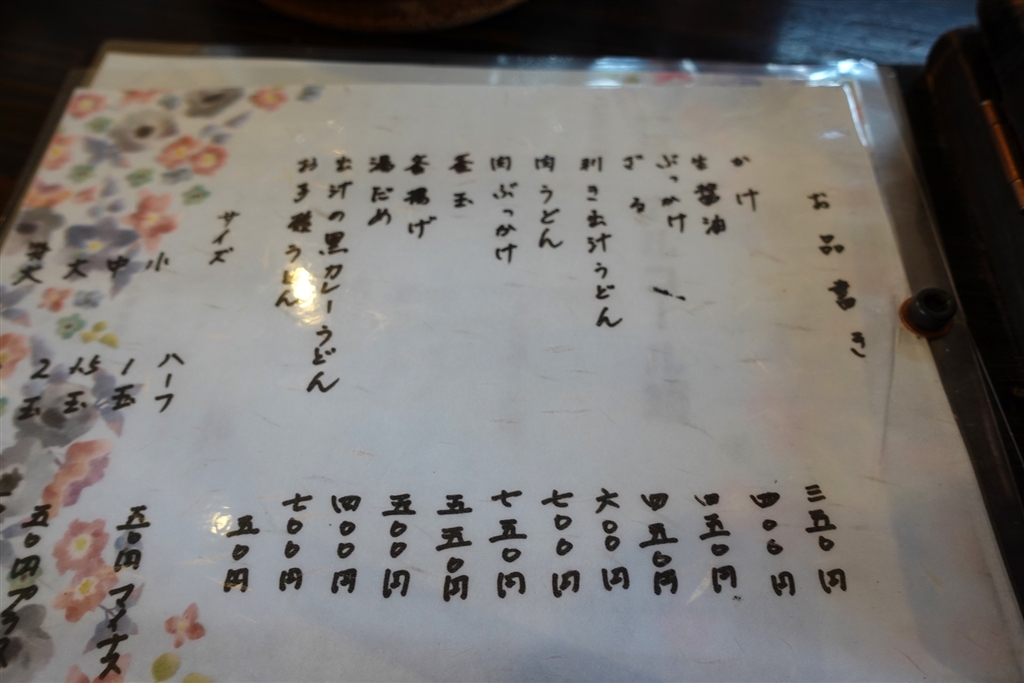 お品書き
かけ 三五〇円
生醤油 四〇〇円
ぶっかけ 四五〇円
ざる 四五〇円
利き出汁うどん 六〇〇円
肉うどん 七〇〇円
肉ぶっかけ 七五〇円
釜玉 五五〇円
釜揚げ 五〇〇円
湯だめ 四〇〇円
出汁の黒カレーうどん 七〇〇円
お子様うどん 五〇円
サイズ
小 ハーフ 五〇円マイナス
中 1玉
大 1.5玉 五〇円プラス
特大 2玉